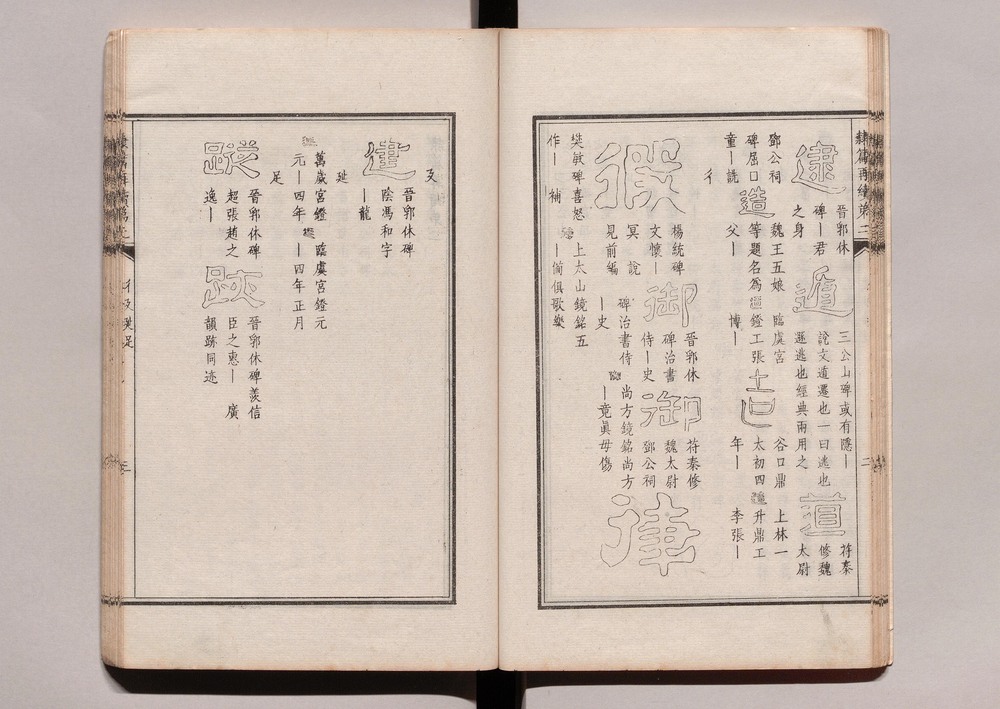 隸篇再續第二
逮
晉郭休
碑｜君
之身
遁
三公山碑或有隱｜
說文遁遷也一曰逃也
遯逃也經典兩用之
道
苻秦
修魏
太尉
鄧公祠
碑屈口
童｜訧
造
魏王五娘
等題名爲
父｜
臨虞宮
鐙工張
博｜
谷口鼎
太初四
年｜
上林一
升鼎工
李張｜
彳
楊統碑
文懷｜
冥 說
見前編
御
晉郭休
碑治書
侍｜史
碑治書侍
｜史
御
苻秦修
魏太尉
鄧公祠
尚方鏡銘尚方
｜竟眞毋傷
律
樊敏碑喜怒
作｜
上太山鏡銘五
｜簡俱歌樂
補
廴
建
晉郭休碑
陰馮和字
｜龍
延
萬歲宮鐙
元｜四年
臨虞宮鐙元
｜四年正月
足
蹤
晉郭休碑
超張趙之
逸｜
晉郭休碑羨信
臣之惠｜ 廣
韻跡同迹
三